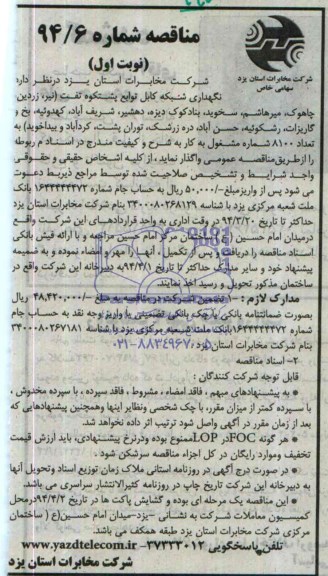 مناقصه شماره ۹۴/۶
(نوبت اول)
شرکت مخابرات استان یزد
سهامی خاص
شرکت مخابرات استان یزد درنظر دارد
نگهداری شبکه کابل توابع پشتکوه تفت (نیر، زردین
چاهوک، میرهاشم، سخوید، بنادکوک دیزه، دهشیر، شریف آباد، کهدوئیه، بخ و
گاریزات، رشکوئیه، حسن آباد، دره زرشک، توران پشت، کردآباد و بیداخوید) به
تعداد ۸۱۰۰ شماره مشغول به کار به شرح و کیفیت مندرج در اسناد م ربوطه
را ازطریق مناقصه عمومی واگذار نماید، از کلیه اشخاص حقیقی و حقوقی
واجد شرایط و تشخیص صلاحیت شده توسط مراجع ذیربط دعوت
می شود پس از واریز مبلغ ۵۰/۰۰۰ ریال به حساب جام شماره ۱۶۴۴۴۴۴۴۷۲ بانک
ملت شعبه مرکزی یزد با شناسه ۳۴۰۰۰۸۰۲۶۸۱۲۹ بنام شرکت مخابرات استان یزد
حداکثر تا تاریخ ۹۴/۳/۲۰ در وقت اداری به واحد قراردادهای این شرکت واقع
درمیدان امام حسین (ع) ساختمان مرکز امام حسین مراجعه و با ارائه فیش بانکی
اسناد مناقصه را دریافت و پس از تکمیل، آنها را مهر و امضاء نموده و به ضمیمه
پیشنهاد خود و سایر مدارک حداکثر تا تاریخ ۹۴/۴/۱ به دبیرخانه این شرکت واقع در
ساختمان مذکور تحویل و رسید اخذ نمایند.
مدارک لازم : ۱- تضمین شرکت در مناقصه به مبلغ ۴۸,۴۲۰,۰۰۰/- ریال
بصورت ضمانتنامه بانکی یا چک بانکی تضمینی یا واریز وجه نقد به حساب جام
شماره ۱۶۴۴۴۴۴۴۷۲ بانک ملت شعبه مرکزی یزد با شناسه ۳۴۰۰۰۸۰۲۶۷۱۸۱
بنام شرکت مخابرات استان یزد
۰۲۱-۸۸۳۴۹۶۷۰
۲- اسناد مناقصه
قابل توجه شرکت کنندگان :
به پیشنهادهای مبهم ، فاقد امضاء ، مشروط ، فاقد سپرده ، با سپرده مخدوش ،
با سپرده کمتر از میزان مقرر، با چک شخصی ونظایر اینها وهمچنین پیشنهادهایی که
بعد از زمان مقرر در آگهی واصل شود ترتیب اثر داده نخواهد شد.
هر گونه FOC در LOP ممنوع بوده ودرنرخ پیشنهادی، باید ارزش قیمت
تخفیف وموارد رایگان در کل اجزاء مناقصه سرشکن شود .
در صورت درج آگهی در روزنامه استانی ملاک زمان توزیع اسناد وتحویل آنها
به دبیرخانه این شرکت تاریخ چاپ در روزنامه کثیرالانتشار سراسری می باشد.
این مناقصه یک مرحله ای بوده و گشایش پاکت ها در تاریخ ۹۴/۴/۲ درمحل
کمیسیون معاملات شرکت به نشانی -یزد-میدان امام حسین(ع) ( ساختمان
مرکزی شرکت مخابرات استان یزد طبقه همکف می باشد.
تلفن پاسخگویی ۳۷۲۳۳۰۱۲- www.yazdtelecom.ir
شرکت مخابرات استان یزد